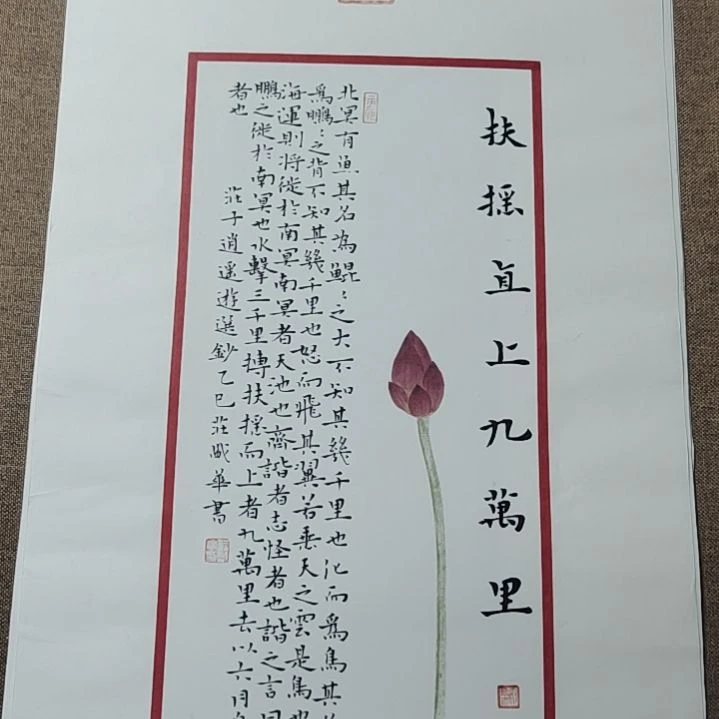 扶摇直上九萬里
北冥有魚其名為鯤〻之大不知其幾千里也化而為鳥其
為鵬〻之背不知其幾千里也怒而飛其翼若垂天之雲是鳥也
海運則將徙於南冥南冥者天池也齊諧者志怪者也諧之言曰
鵬之徙於南冥也水擊三千里搏扶摇而上者九萬里去以六月
者也
莊子逍遥遊選鈔乙巳莊華書